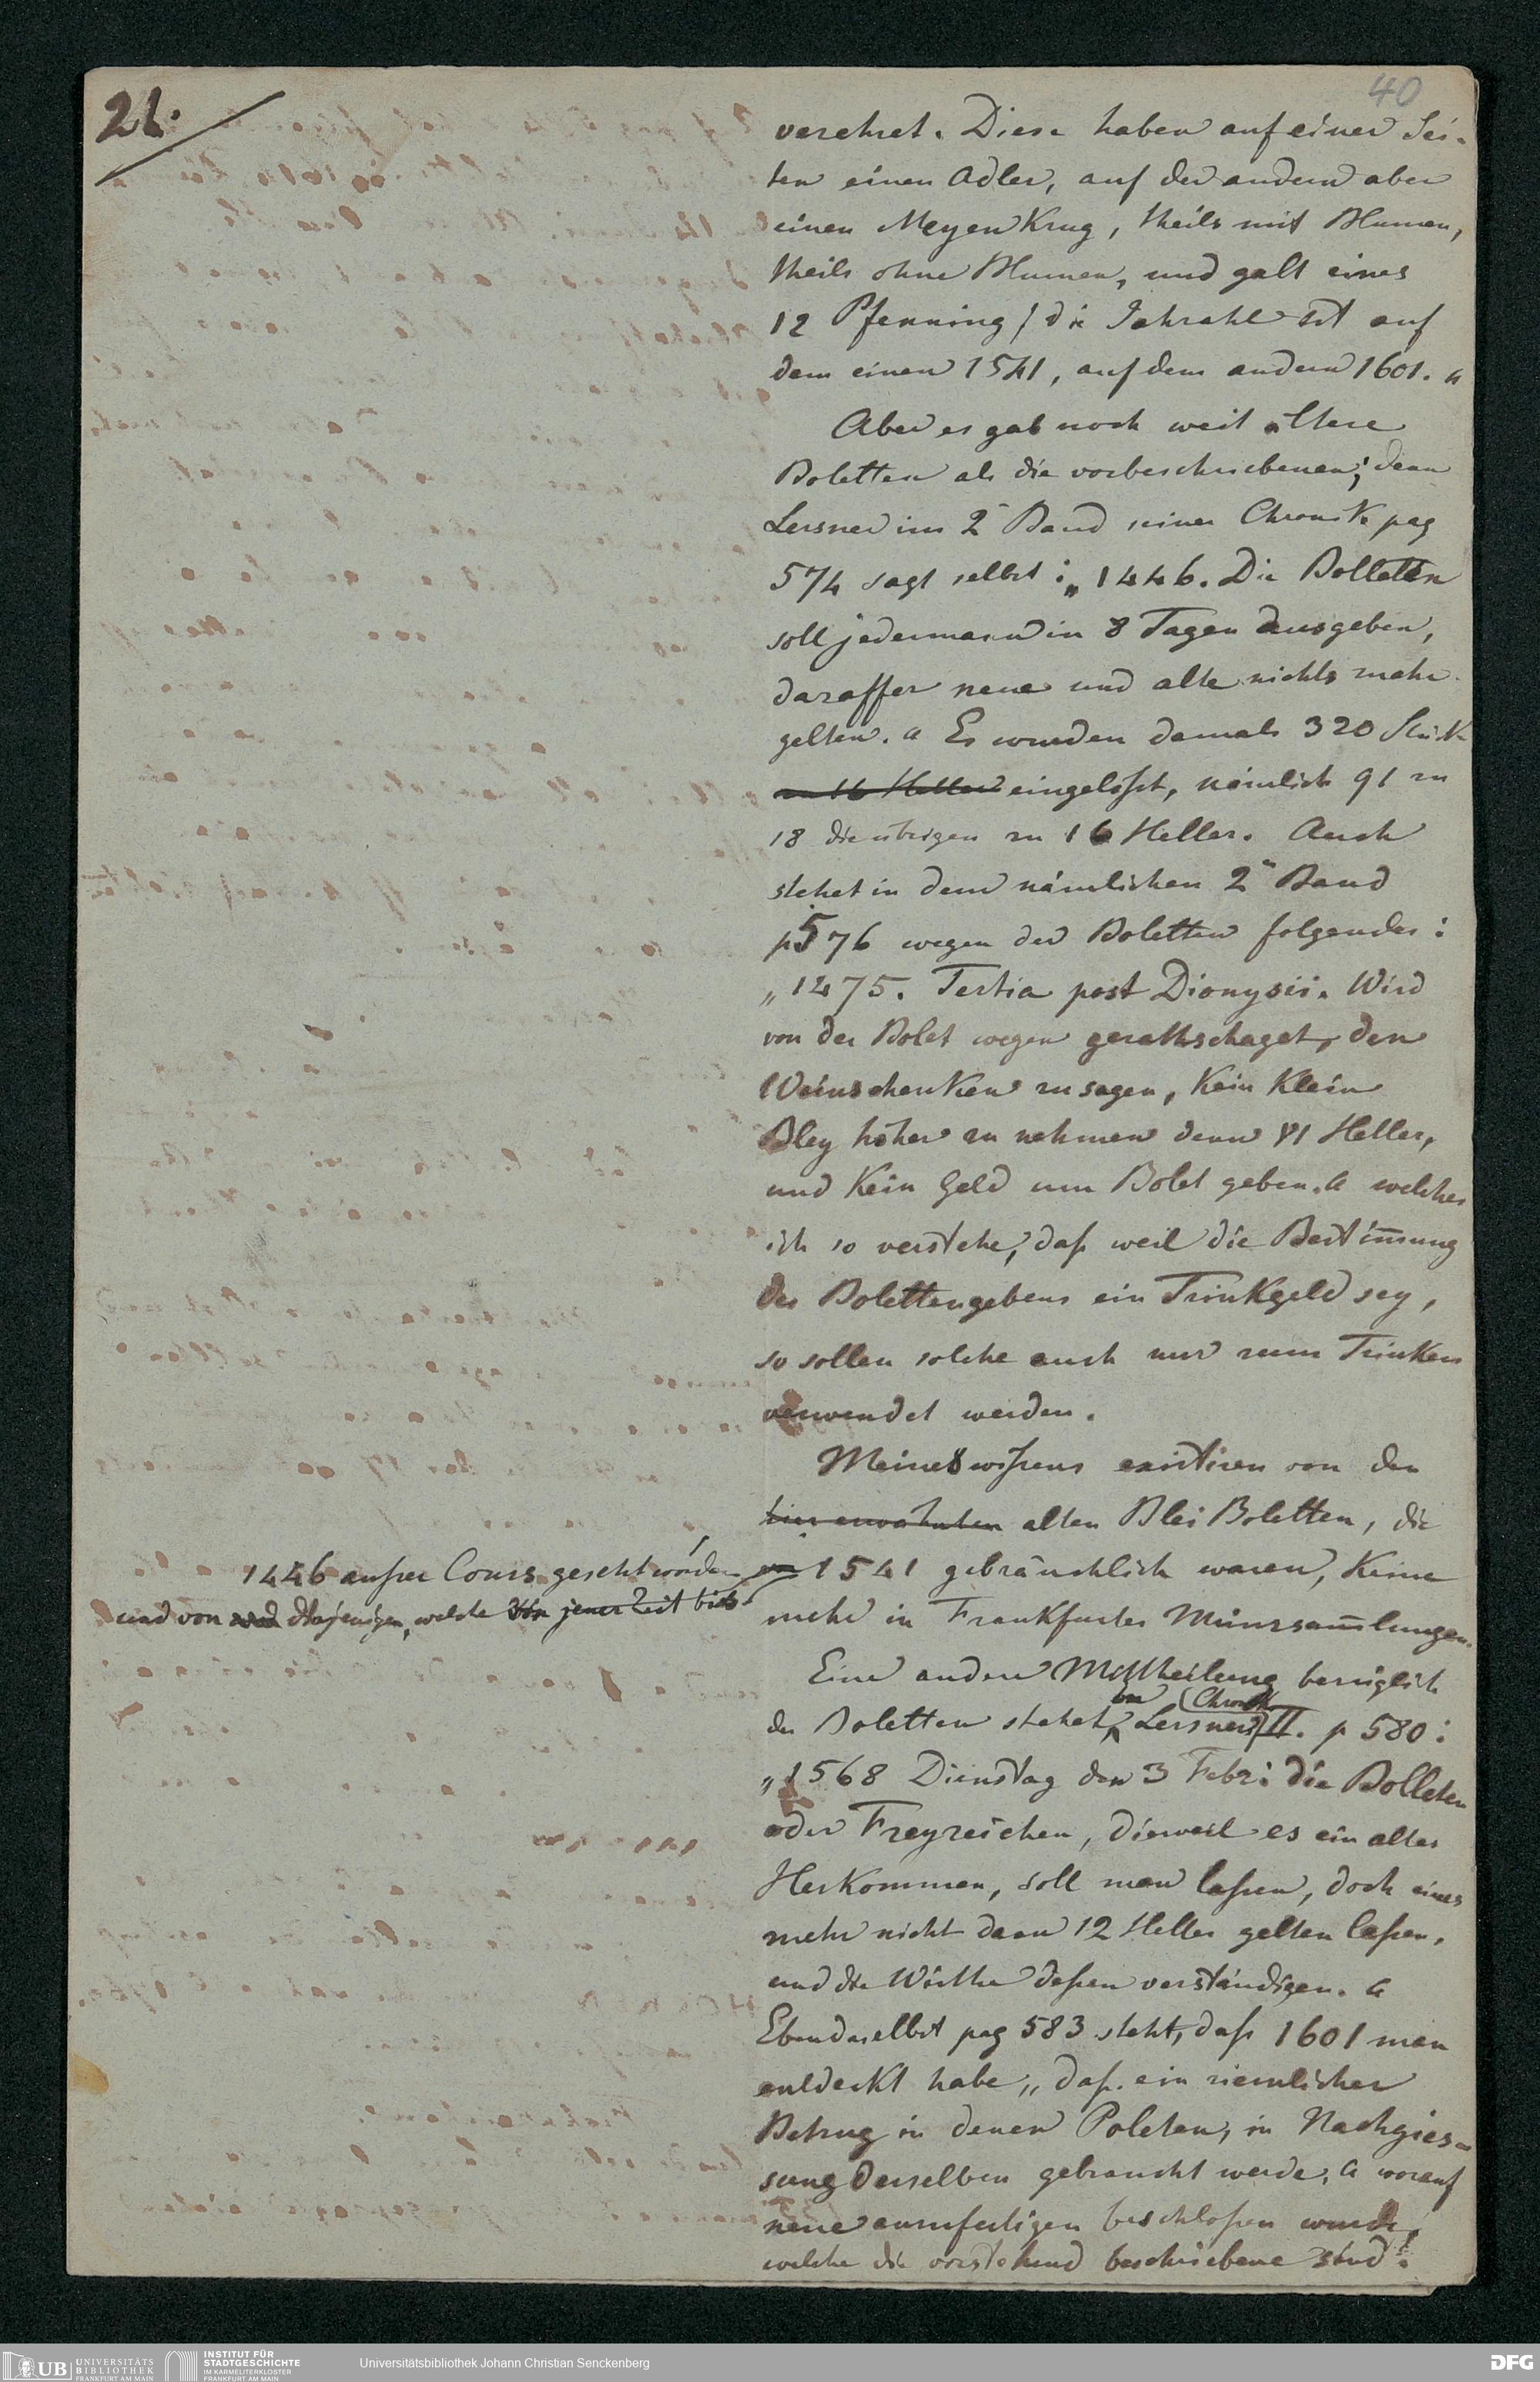 21.
40
verehret. Diese haben auf einer Sei-
ten einen Adler, auf der andern aber
einen Meyen Krug, theils mit Blumen,
theils ohne Blumen, und galt eines
12 Pfenning / die Jahrzahl ist auf
dem einen 1541, auf dem andern 1601. "
Aber es gab noch weit ältere
Boletten als die vorbeschriebenen; denn
Lersner im 2n Band seiner Chronik pag
574 sagt selbst: „1446. Die Bolleten
soll jedermann in 8 Tagen ausgeben,
daraffter neue und alte nichts mehr
gelten." Es wurden damals 320 Stück
zu 16 Heller eingelößt, nämlich 91 zu
18 die übrigen zu 16 Heller. Auch
stehet in dem nämlichen 2n Band
p 576 wegen der Boletten folgendes:
„1475. Tertia post Dionysii. Wird
von der Bolet wegen gerathschaget, den
Weinschenken zu sagen, Kein Klein
Bley höher zu nehmen denn VI Heller,
und Kein Geld um Bolet geben." welches
ich so verstehe, daß weil die Bestim̅ung
des Bolettengebens ein Trinkgeld sey,
so sollen solche auch nur zum Trinken
verwendet werden.
Meines wißens existiren von den
hier erwähnten alten Blei Boletten, die
1446 außer Cours gesetzt worden
und von denjenigen, welche von jener Zeit bis
1541 gebräuchlich waren, Keine
mehr in Frankfurter Münzsam̅lungen.
Eine andere Mittheilung bezüglich
der Boletten stehet in Lersners Chronik II. p 580:
„1568 Dienstag den 3 Febr: die Bolleten
oder Freyzeichen, dieweil es ein altes
Herkommen, soll man laßen, doch eines
mehr nicht dann 12 Heller gelten laßen,
und die Wirthe deßen verständigen."
Ebendaselbst pag 583 steht, daß 1601 man
entdeckt habe „daß ein ziemlicher
Betrug in denen Poleten, in Nachgies-
sung derselben gebraucht werde," worauf
neue anzufertigen beschloßen wurde,
welche die vorstehend beschriebene sind.
UB UNIVERSITÄTS
BIBLIOTHEK
FRANKFURT AM MAIN
INSTITUT FÜR
STADTGESCHICHTE
IM KARMELITERKLOSTER
FRANKFURT AM MAIN
Universitätsbibliothek Johann Christian Senckenberg
DFG